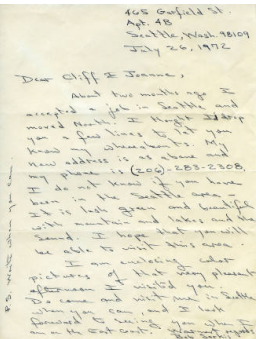 465 Garfield St.
Apt. 4B
Seattle, Wash. 98109
July 26, 1972
Dear Cliff & Joanne,
About two months ago I
accepted a job in Seattle and
moved North. I thought I'd drop
you a few lines to let you
know my whereabouts. My
new address is as above and
my phone is (206)-283-2308.
I do not know if you have
been in the Seattle area.
It is lush green and beautiful
with mountains and lakes and the
Sound. I hope that you will
be able to visit this area.
I am enclosing color
pictures of that very pleasant
afternoon I visited you.
Do come and visit me in Seattle
when you can, and I look
forward to seeing you when I
am on the East Coast. Warmest regards,
Bob
P.S. Write when you can.